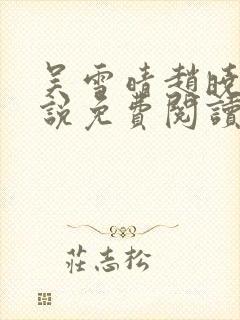 吴雪晴趙曉
說免費閱讀
莊志松